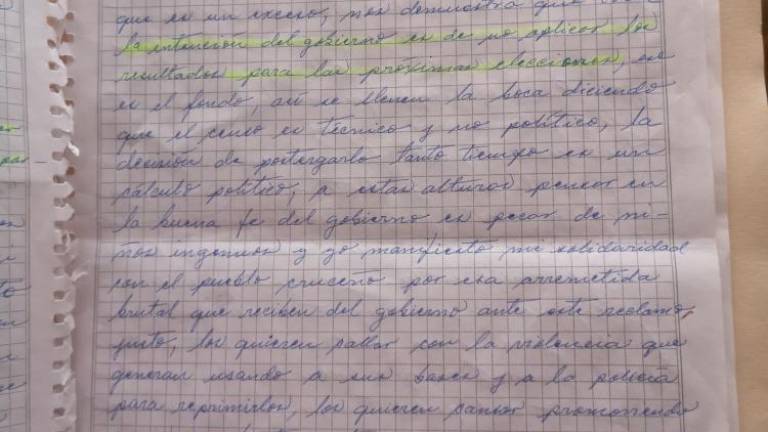 que es un exceso, nos demuestra que
la intención del gobierno es de no aplicar los
resultados para las próximas elecciones, ese
es el fondo, así se llenen la boca diciendo
que el censo es técnico y no político, la
decisión de postergarlo tanto tiempo es un
cálculo político, a estas alturas pensar en
la buena fe del gobierno es pecar de ni-
ños ingenuos y yo manifiesto mi solidaridad
con el pueblo cruceño por esa arremetida
brutal que reciben del gobierno ante este reclamo
justo, los quieren callar con la violencia que
generan usando a sus bases y a la policía
para reprimirlos, los quieren cansar promoviendo